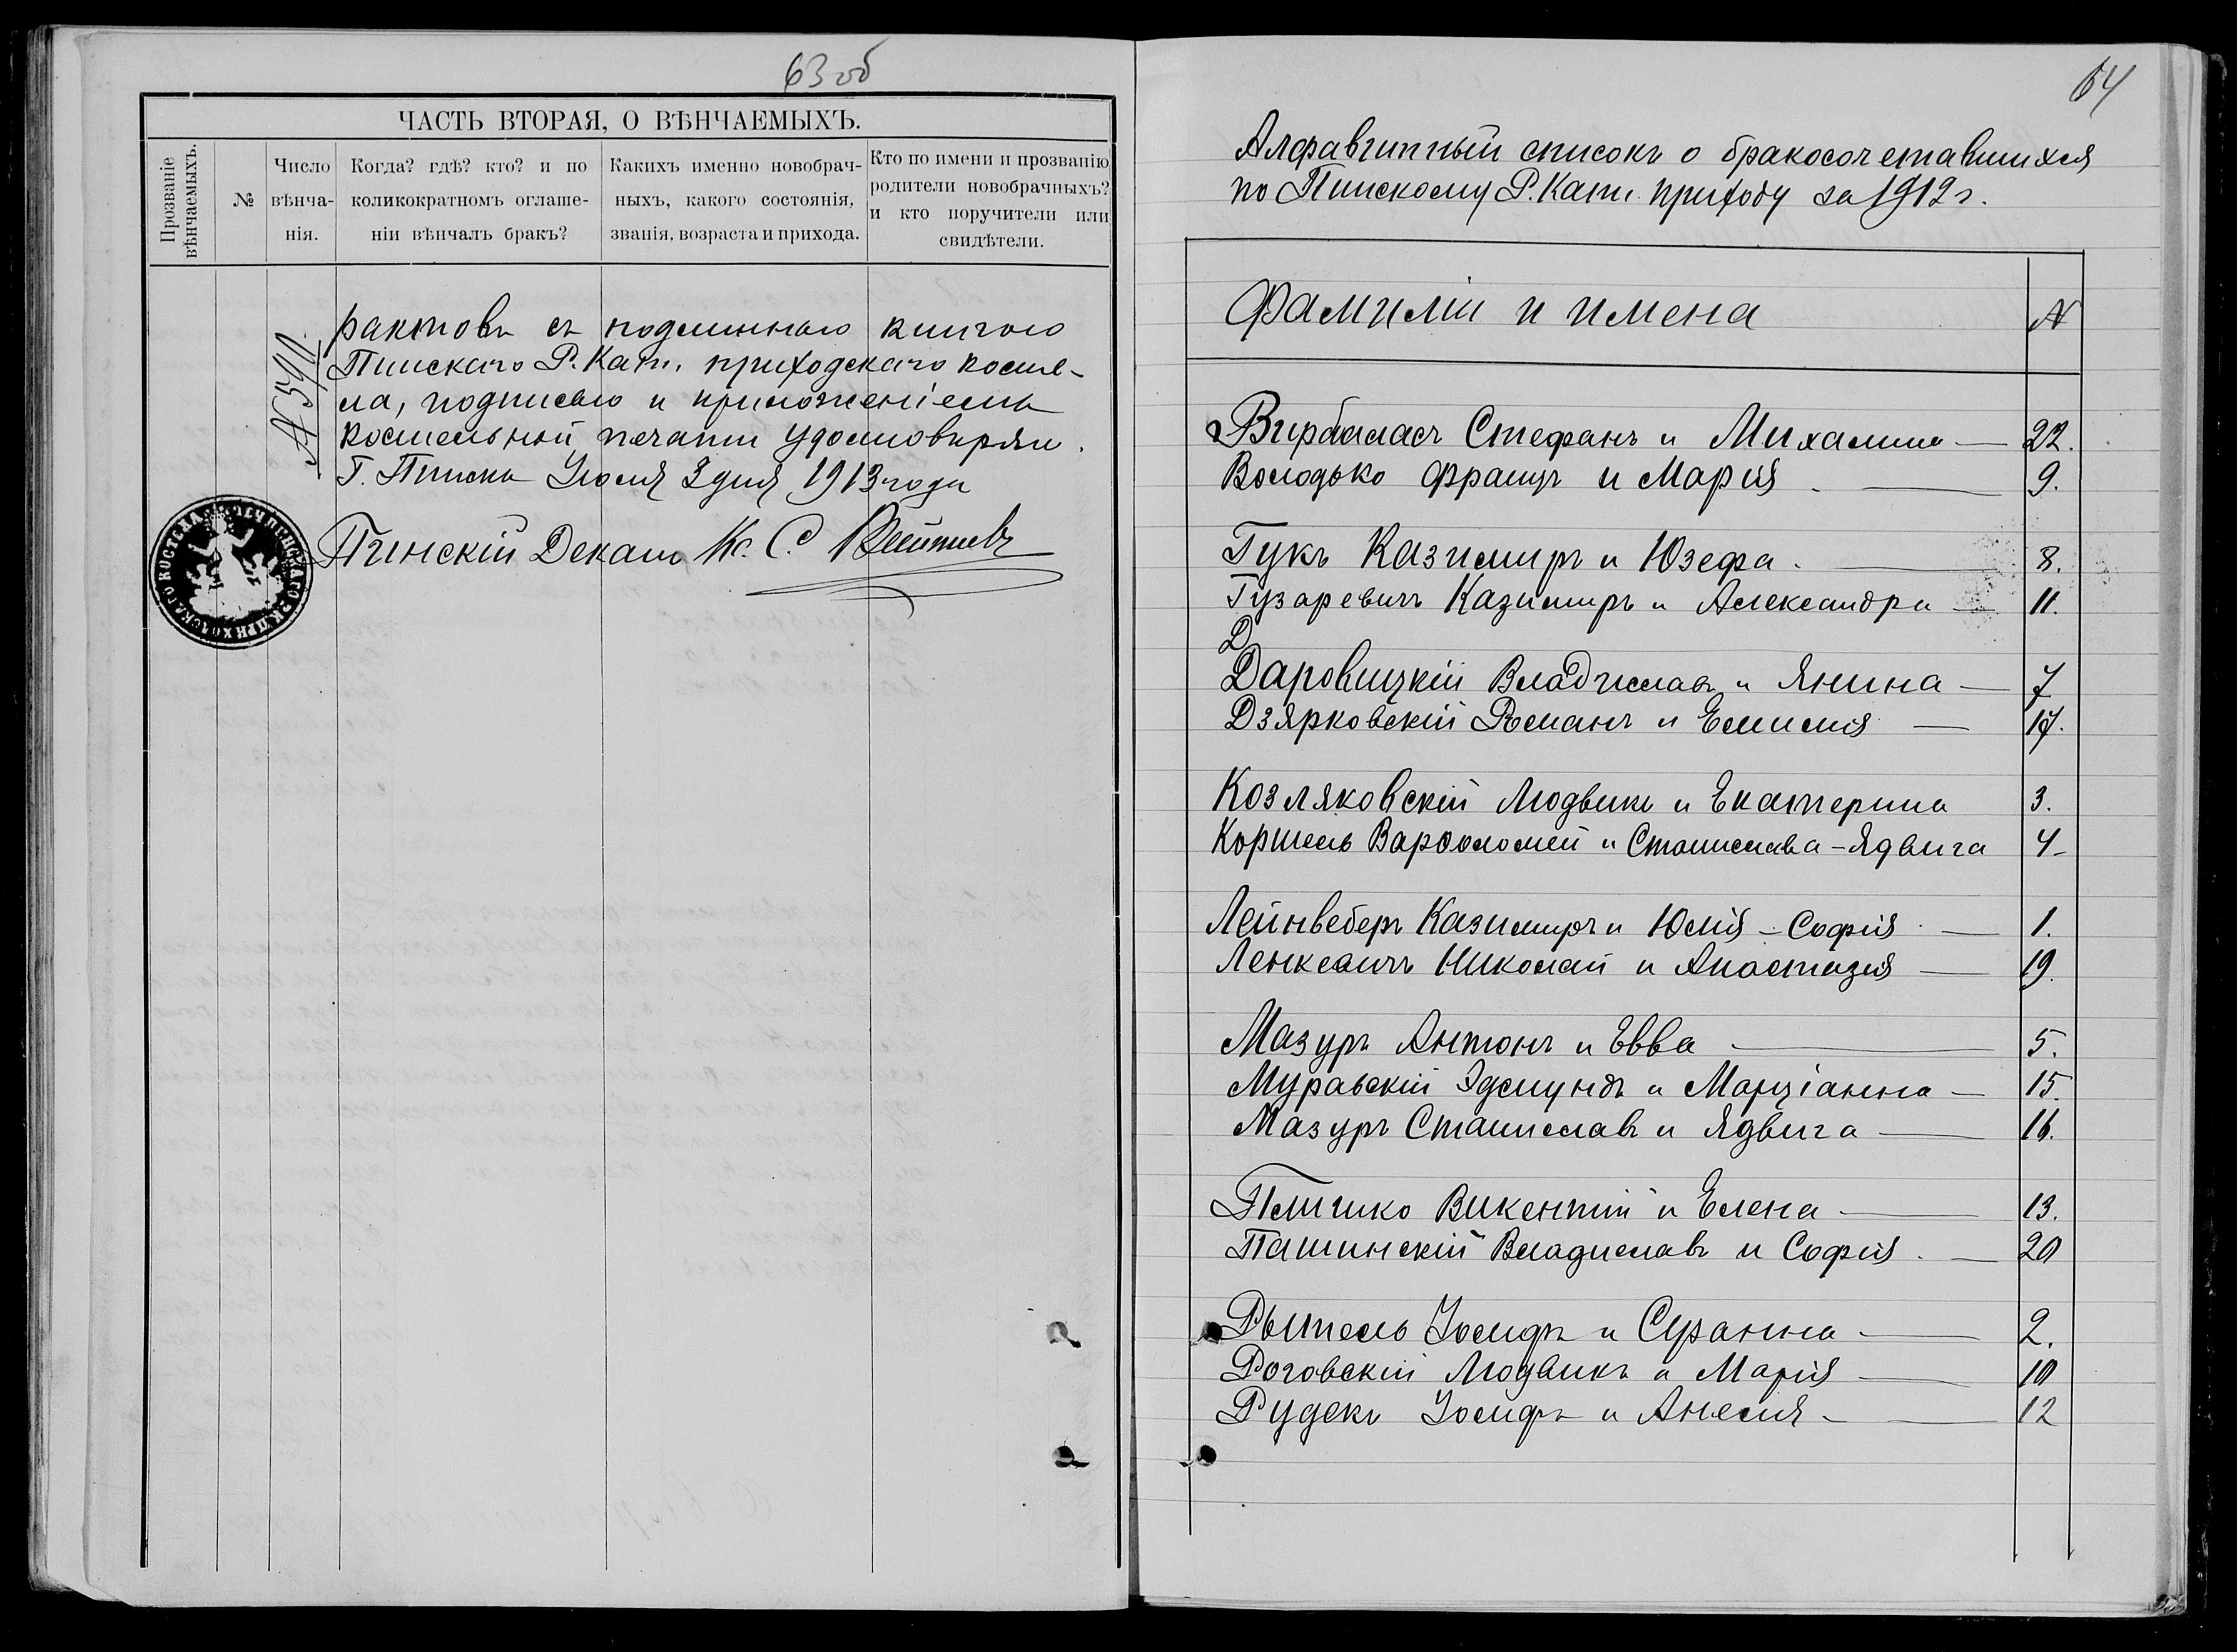 63 об
ЧАСТЬ ВТОРАЯ, О ВѢНЧАЕМЫХЪ.
Прозваніе вѣнчаемыхъ.
№
Число вѣнча-нія.
Когда? гдѣ? кто? и по коликократномъ оглаше-ніи вѣнчалъ бракъ?
Какихъ именно новобрач-ныхъ, какого состоянія, званія, возраста и прихода.
Кто по имени и прозванію родители новобрачныхъ? и кто поручители или свидѣтели.
рактовъ съ подлинною книгою
Пинскаго Р. Кат. приходскаго косте-
ла, подписью и приложеніемъ
костельной печати удостовѣряю.
Г. Пинскъ Іюля 3 дня 1913 года
№ 540.
Пинскій Деканъ Кс. С.
64
Алфавитный списокъ о бракосочетавшихся
по Пинскому Р. Кат. приходу за 1912 г.
Фамиліи и имена N
Вирбаласъ Стефанъ и Михалина — 22.
Володько Францъ и Марія — 9.
Гукъ Казимиръ и Юзефа. — 8.
Гузаревичъ Казимиръ и Александра — 11.
Д
Даровицкій Владиславъ и Янина — 7
Дзярковскій Романъ и Емилія — 17.
Козляковскій Людвикъ и Екатерина 3.
Коршель Варфоломей и Станислава-Ядвига 4-
Лейнвеберъ Казимиръ и Юлія-Софія — 1.
Ленкевичъ Николай и Анастазія — 19.
Мазуръ Антонъ и Евва — 5.
Муравскій Эдмундъ и Марціанна — 15.
Мазуръ Станиславъ и Ядвига — 16.
Викентій и Елена — 13.
Пашинскій Владиславъ и Софія. — 20
Рытель Іосифъ и Сузанна — 2.
Роговскій Людвикъ и Марія — 10
Рудекъ Іосифъ и Анеля — 12